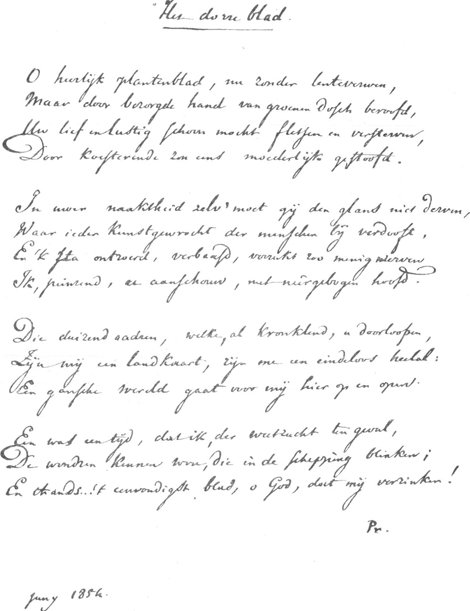 Het dorre blad.
O heerlijk plantenblad, nu zonder lenteverwen,
Maar door bezorgde hand van groenen dosch beroofd,
Uw lief en lustig schoon mocht fletsen en versterven,
Door koesterende zon eens moederlijk gestoofd.
In uwer naaktheid zelv' moet gij den glans niet derven,
Waar ieder kunstgewrocht der menschen bij verdooft,
En 'k sta ontroerd, verbaasd, verrukt zoo menigwerven
Ik, peinzend, u aanschouw, met neêrgebogen hoofd.
Die duizend aadren, welke, al kronklend, u doorloopen,
Zijn mij een landkaart, zijn me een eindeloos heelal:
Een gansche wereld gaat voor mij hier op en open.
Een was een tijd, dat ik, der weetzucht ten geval,
De wondren kennen wou, die in de schepping blinken;
En thands..! 't eenvoudigst blad, o God, doet mij verzinken!
Pr.
Juny 1854.